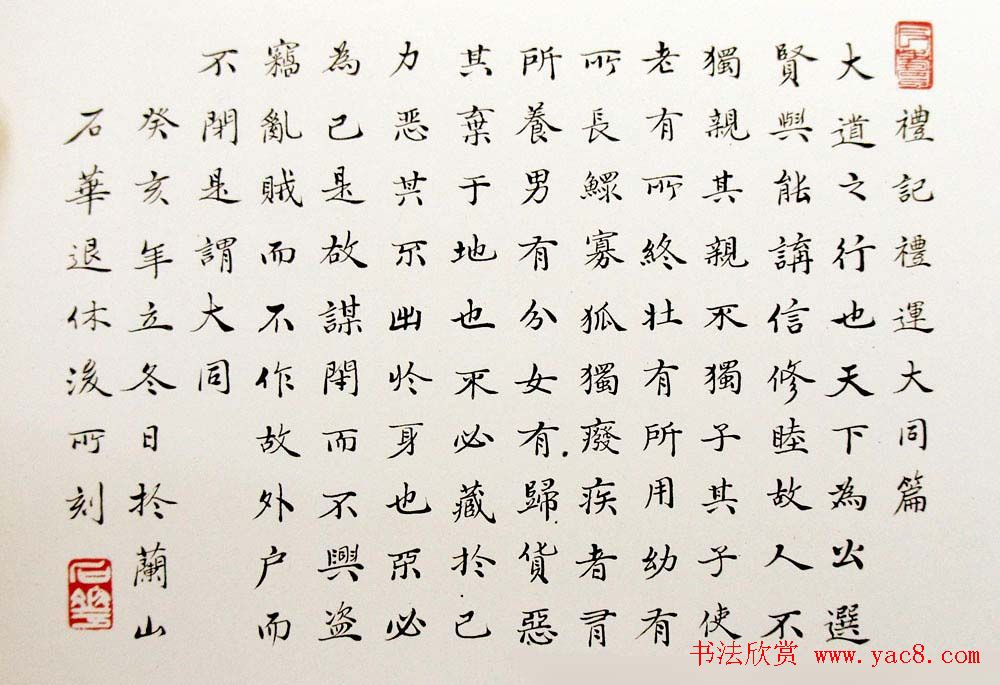 禮記禮運大同篇
大道之行也天下為公選
賢與能講信修睦故人不
獨親其親不獨子其子使
老有所終壯有所用幼有
所長鰥寡孤獨廢疾者有
所養男有分女有歸貨惡
其棄于地也不必藏於己
力惡其不出於身也不必
為己是故謀閉而不興盜
竊亂賊而不作故外户而
不閉是謂大同
癸亥年立冬日於蘭山
石華退休後所刻
石華
书法欣赏 www.yac8.com